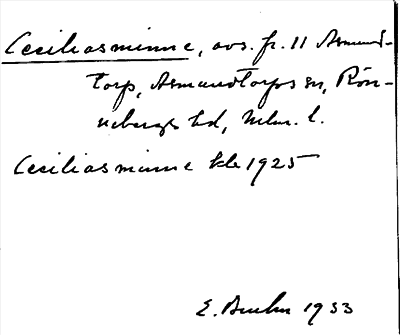 Ceciliasminne, avs. fr. 11 Asmund-
torp, Asmundtorps sn, Rön-
nebergs hd, Mlm. l.
Ceciliasminne kle 1925
E. 1953